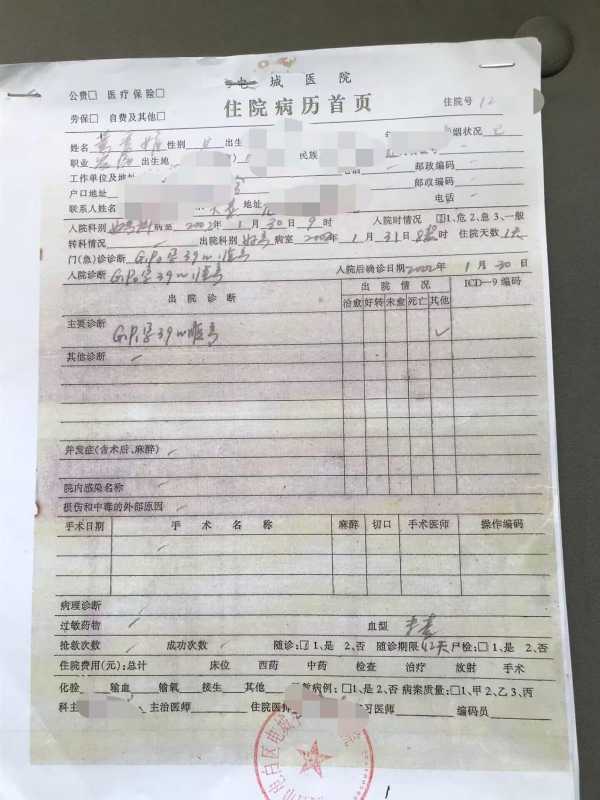 公费□ 医疗保险□ 电城医院
劳保□ 自费及其他□ 住院病历首页 住院号 12
姓名 性别 出生 婚姻状况
职业 农民 出生地 民族 电话 邮政编码
工作单位及地址 邮政编码
户口地址
联系人姓名 地址 电话
入院科别 病室 2002年 1 月 30 日 9 时 入院时情况 1、危 2、急 3、一般
转科情况 出院科别 病室 2002年 1 月 31 日 8 时 住院天数 1天
门(急)诊诊断 G1P0孕39W临产
入院诊断 G1P0孕39W临产 入院后确诊日期2002年 1 月 30 日
出院诊断 出院情况 ICD—9 编码
治愈 好转 未愈 死亡 其他
主要诊断 孕39W临产 ✓
其他诊断
并发症(含术后、麻醉)
院内感染名称
损伤和中毒的外部原因
手术日期 手术名称 麻醉 切口 手术医师 操作编码
病理诊断
过敏药物 血型 未查
抢救次数 成功次数 随诊:□1、是 2、否 随诊期限42天 尸检:□1、是 2、否
住院费用(元):总计 床位 西药 中药 检查 治疗 放射 手术
化验 输血 输氧 接生 其他 病例:□1、是 2、否 病案质量:□1、甲 2、乙 3、丙
科主 主治医师 住院医 习医师 编码员
电白区电城
1